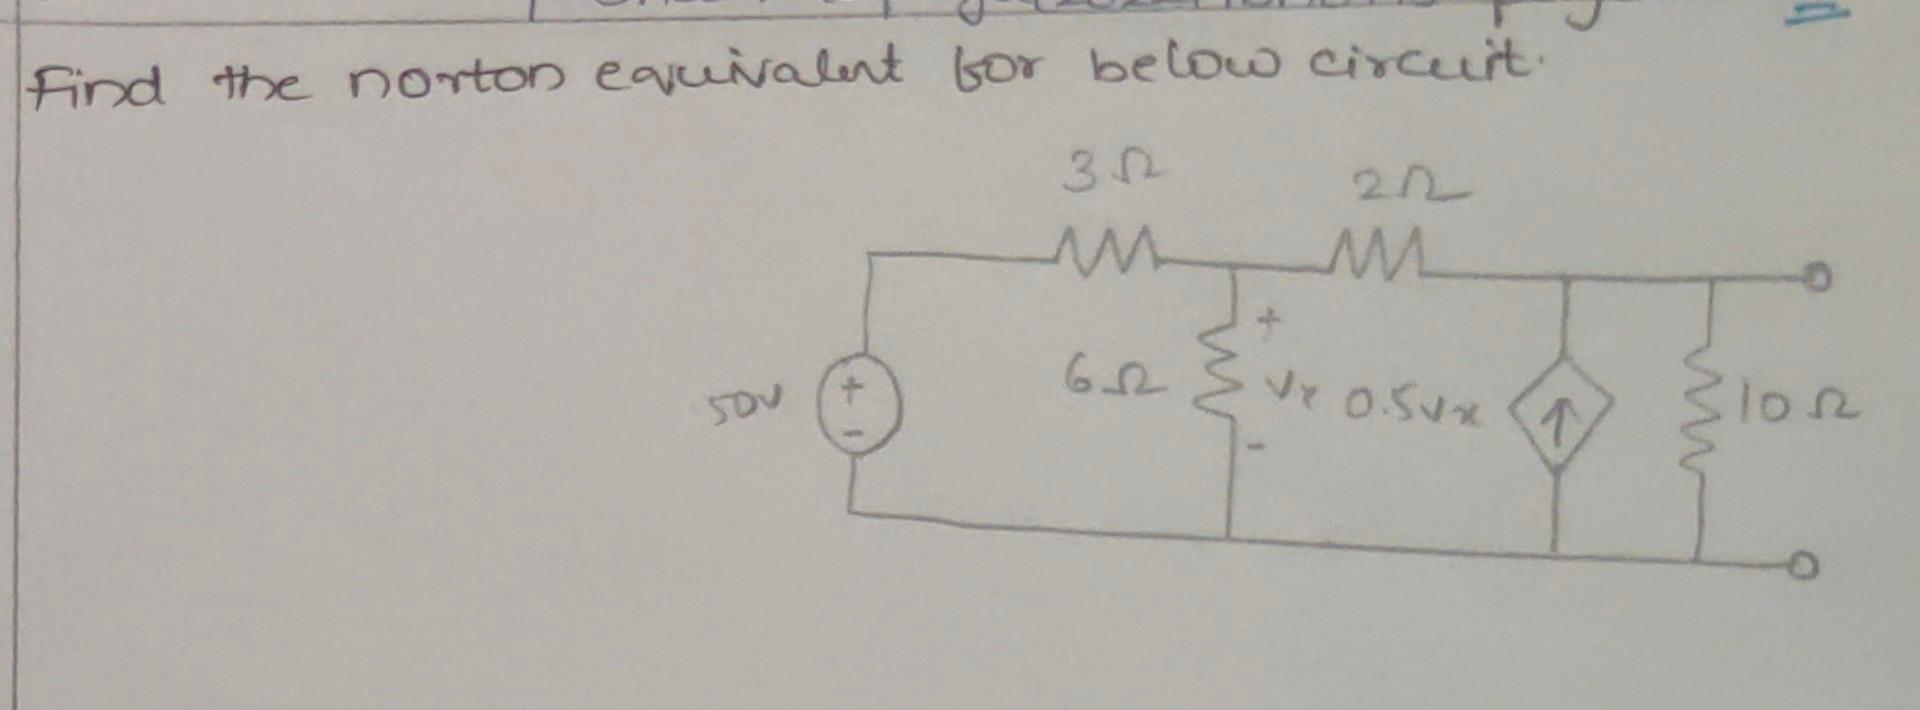 Find the norton equivalent for below circuit.
3Ω
2Ω
50V
+
-
6Ω
+
Vx
-
0.5Vx
10Ω